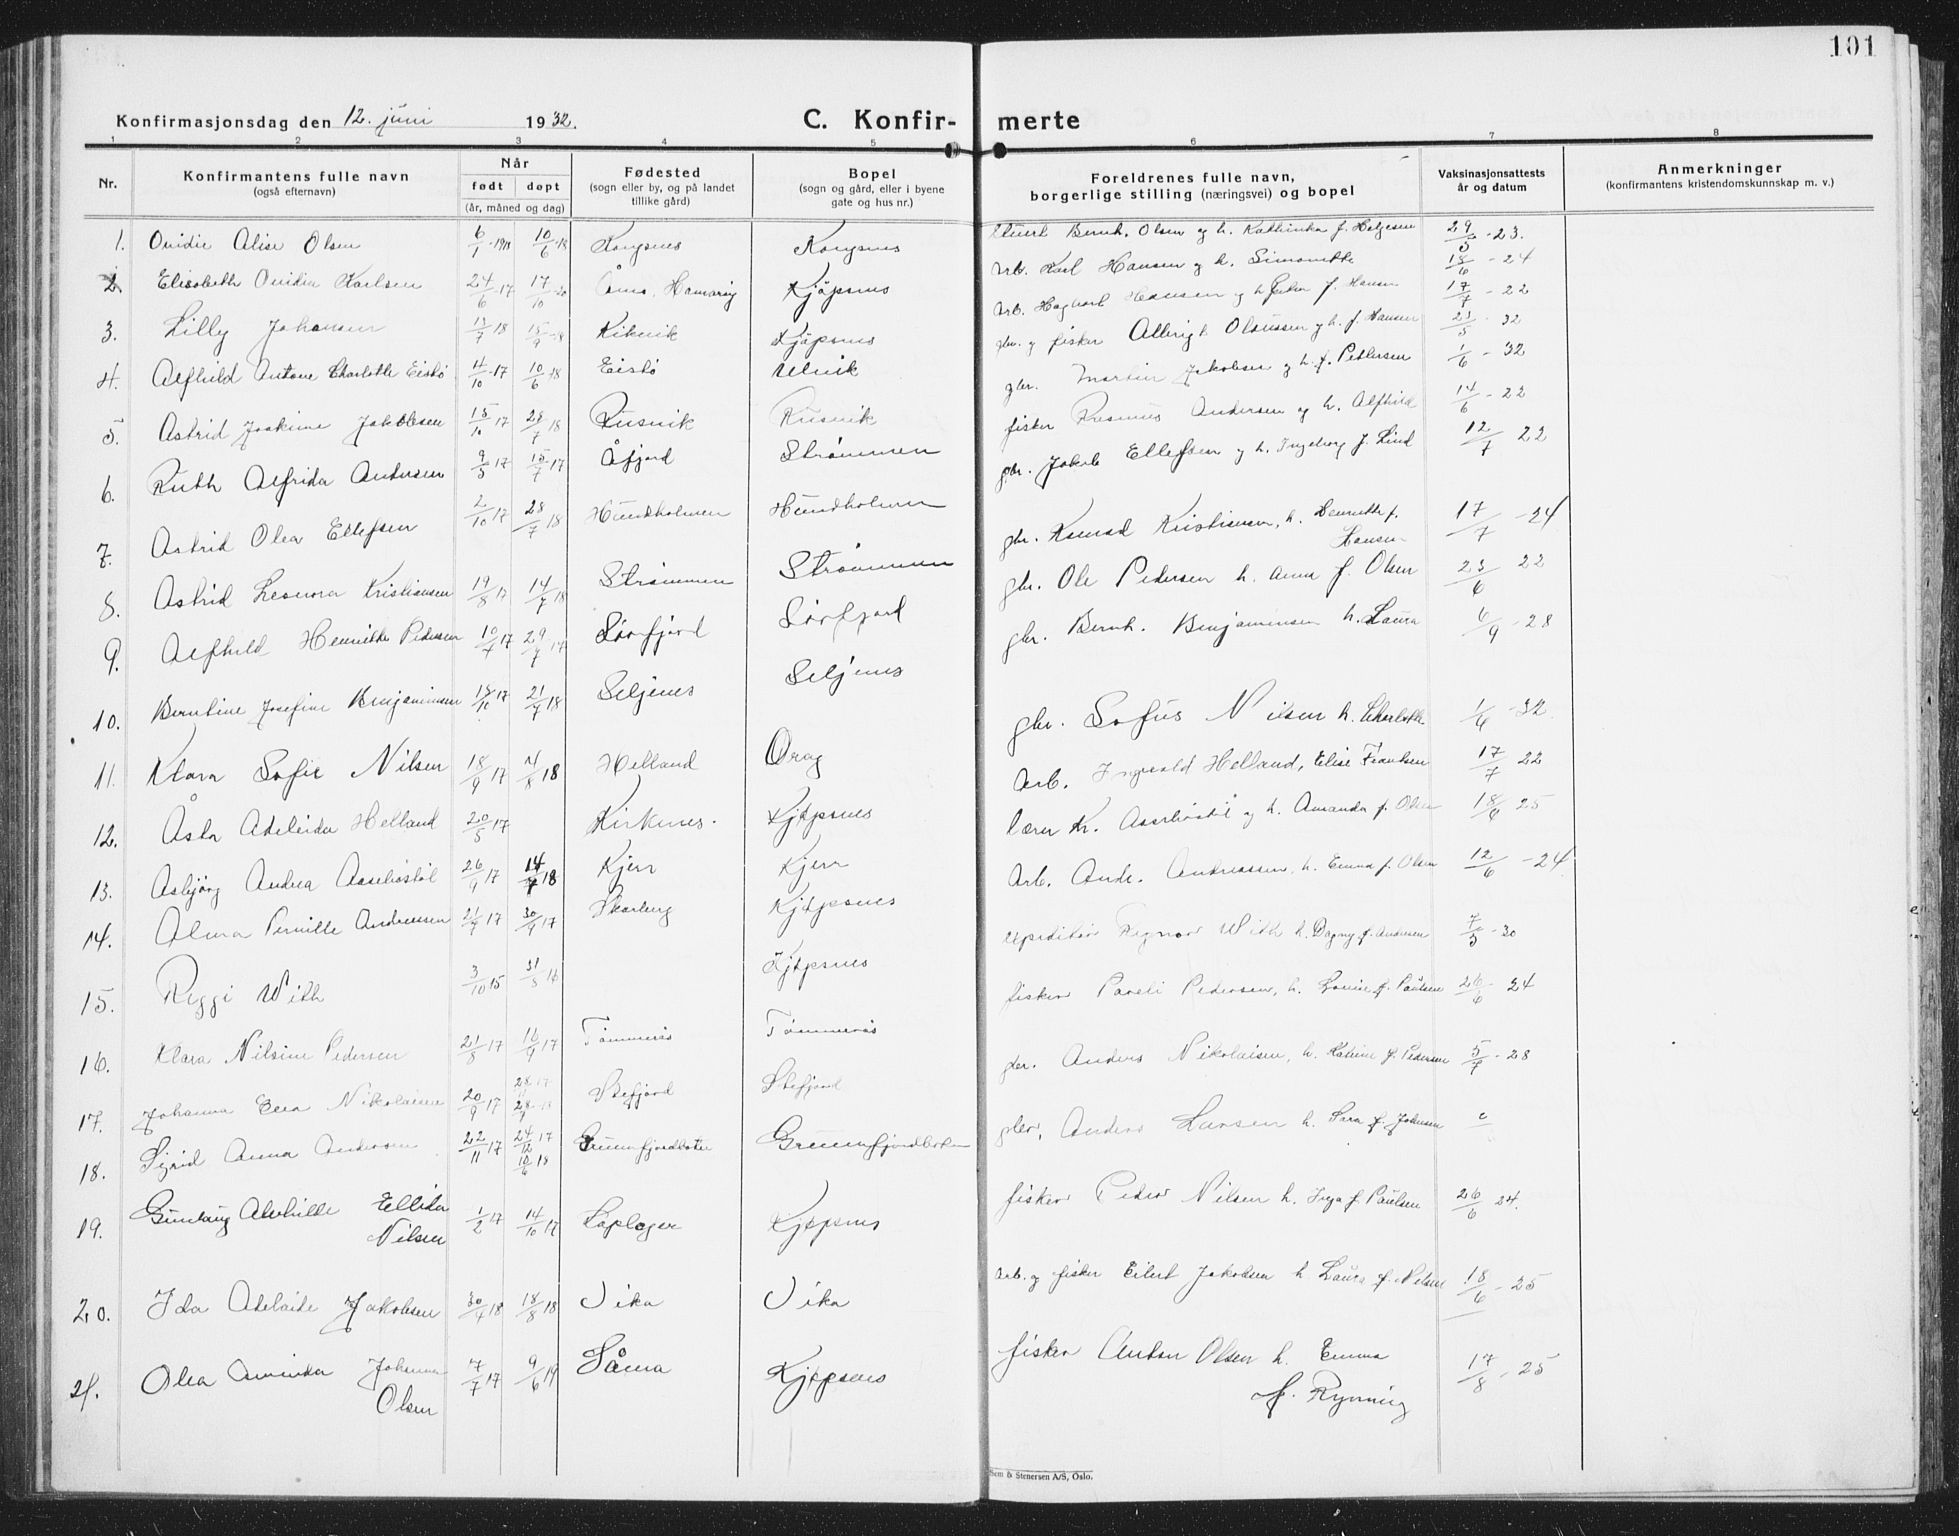 101
Konfirmasjonsdag den 12. juni 1932. C. Konfir- merte
1 2 3 4 5 6 7 8
Nr. Konfirmantens fulle navn (også efternavn) Når født døpt (år, måned og dag) Fødested (sogn eller by, og på landet tillike gård) Bopel (sogn og gård, eller i byene gate og hus nr.) Foreldrenes fulle navn, borgerlige stilling (næringsvei) og bopel Vaksinasjonsattests år og datum Anmerkninger (konfirmantens kristendomskunnskap m. v.)
1. Ovidie Alise Olsen 6/1-1918 10/6-18 Korsnes Korsnes Bernh. Olsen og h. Kathinka f. Helgesen 29/5-23.
2. Elisabeth Ovidia Karlsen 24/6-17 17/10-20 Kjøpsnes arb. Karl Hansen og h. Simonette 18/6-24
3. Lilly Johansen 13/7-18 15/9-18 Kikvik Kjøpsnes arb. Hagbart Hansen og h. f. Hansen 17/7-22
4. Alfhild Antone Charlotte Eisbø 14/10-17 10/6-18 Eisbø Ulvik gbr. og fisker Olaussen og h. f. Hansen 21/5-32
5. Astrid Joakime Jakobsen 15/10 17 28/7 18 Rusvik Rusvik gbr. Martin Jakobsen og h. f. Pettersen 1/6-32
6. Ruth Alfrida Andersen 9/5 17 15/7-17 Åfjord Strømmen fisker Rasmus Andersen og h. Alfhild 14/6-22
7. Astrid Olea Ellefsen 2/10 17 28/7 18 Hundholmen Hundholmen gbr. Jakob Ellefsen og h. Ingeborg f. Lind 12/7 22
8. Astrid Leonora Kristiansen 19/8 17 14/7 18 Strømmen Strømmen gbr. Konrad Kristiansen, h. Henrette f. Hansen 17/7-24
9. Alfhild Henrikke Pedersen 10/7 17 29/7 17 Sørfjord Sørfjord gbr. Ole Pedersen h. Anna f. Olsen 23/6 22
10. Berntine Josefine Benjaminsen 18/10 17 21/7 18 Seljenes Seljenes gbr. Bernh. Benjaminsen h. Laura 6/9-28
11. Klara Sofie Nilsen 18/9 17 4/8 18 Helland Drag gbr. Sofus Nilsen h. Charlotte 1/6-32
12. Åsta Adeleida Helland 20/5 17 Kirkenes. Kjøpsnes Arb. Ingvald Helland, Elise Frantsen 17/7 22
13. Asbjørg Andrea Asserbøstøl 26/9 17 14/7 18 Kjerr Kjerr lærer Kr. Asserbøstøl og h. Amanda f. Olsen 18/6 25
14. Alma Pernille Andreassen 21/7 17 30/9 17 Skarberg Kjøpsnes Arb. Andr. Andreassen, h. Emma f. Olsen 12/6-24
15. Reggi With 3/10 15 31/8 16 Kjøpsnes expeditør Ragnar With h. Dagny f. Andersen 7/5-30
16. Klara Nilsine Pedersen 21/8 17 16/9 17 Tømmerås Tømmerås fisker Pareli Pedersen, h. Lovise f. Paulsen 26/6 24
17. Johanna Elea Nikolaisen 20/9 17 28/ 17 28/ 18 Stefjord Stefjord gbr. Anders Nikolaisen, h. Katrine f. Pedersen 5/7-28
18. Sigrid Anna Andersen 22/11 17 24/12 17 10/6 18 Grunnfjordbotn Grunnfjordbotn gbr. Anders Larsen h. Sara f. Johnsen
19. Gunlaug Alvhilde Ellida Nilsen 1/2 17 14/10 17 Kjøpsnes fisker Peder Nilsen h. Inga f. Paulsen 26/6 24.
20. Ida Adelaide Jakobsen 30/4 18 18/8 18 Vika Vika Arb. og fisker Eilert Jakobsen h. Laura f. Nilsen 18/6-25
21. Olea Aminda Johanna Olsen 7/7 17 9/6 19 Kjøpsnes fisker Anton Olsen h. Emma f. Rynning 17/8-25
Sem & Stenersen A/S, Oslo.